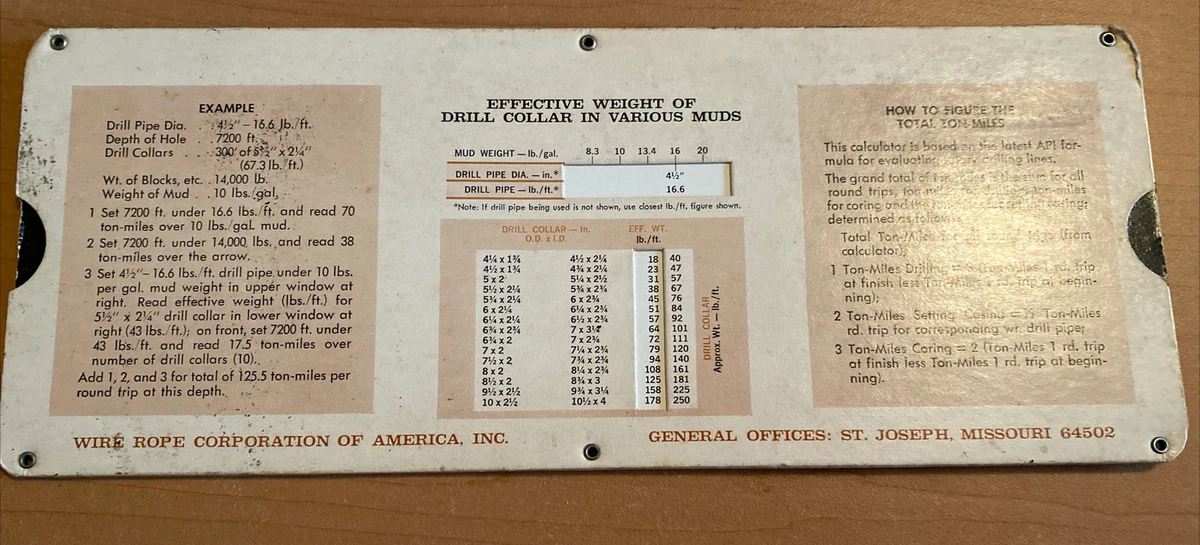 EXAMPLE
Drill Pipe Dia. . . 4½" – 16.6 lb./ft.
Depth of Hole . . 7200 ft.
Drill Collars . . 300' of 5½" x 2¼"
(67.3 lb./ft.)
Wt. of Blocks, etc. . 14,000 lb.
Weight of Mud . . 10 lbs./gal.
1 Set 7200 ft. under 16.6 lbs./ft. and read 70
ton-miles over 10 lbs./gal. mud.
2 Set 7200 ft. under 14,000 lbs. and read 38
ton-miles over the arrow.
3 Set 4½"– 16.6 lbs./ft. drill pipe under 10 lbs.
per gal. mud weight in upper window at
right. Read effective weight (lbs./ft.) for
5½" x 2¼" drill collar in lower window at
right (43 lbs./ft.); on front, set 7200 ft. under
43 lbs./ft. and read 17.5 ton-miles over
number of drill collars (10).
Add 1, 2, and 3 for total of 125.5 ton-miles per
round trip at this depth.
EFFECTIVE WEIGHT OF
DRILL COLLAR IN VARIOUS MUDS
MUD WEIGHT — lb./gal. 8.3 10 13.4 16 20
DRILL PIPE DIA. — in.* 4½"
DRILL PIPE — lb./ft.* 16.6
*Note: If drill pipe being used is not shown, use closest lb./ft. figure shown.
DRILL COLLAR — In. EFF. WT.
O.D. x I.D. lb./ft.
4¼ x 1¾ 4½ x 2¼ 18 40
4½ x 1¾ 4¾ x 2¼ 23 47
5 x 2 5¼ x 2½ 31 57
5½ x 2¼ 5¾ x 2¾ 38 67
5¾ x 2¼ 6 x 2¾ 45 76
6 x 2¼ 6¼ x 2¾ 51 84
6¼ x 2¼ 6½ x 2¾ 57 92
6¾ x 2¾ 7 x 3¼ 64 101
6¾ x 2 7 x 2¾ 72 111
7 x 2 7¼ x 2¾ 79 120
7½ x 2 7¾ x 2¾ 94 140
8 x 2 8¼ x 2¾ 108 161
8½ x 2 8¾ x 3 125 181
9½ x 2½ 9¾ x 3¼ 158 225
10 x 2½ 10½ x 4 178 250
DRILL COLLAR
Approx. Wt. — lb./ft.
HOW TO FIGURE THE
TOTAL TON-MILES
This calculator is based on the latest API for-
mula for evaluating rotary drilling lines.
The grand total of the sum for all
round trips, ton-miles
for coring and the
determined as follows:
Total Ton-Miles (from
calculator);
1 Ton-Miles Drilling = 3 rd. trip
at finish less Ton-Miles 1 rd. trip at begin-
ning);
2 Ton-Miles Setting Casing = ½ Ton-Miles
rd. trip for corresponding wt. drill pipe;
3 Ton-Miles Coring = 2 (Ton-Miles 1 rd. trip
at finish less Ton-Miles 1 rd. trip at begin-
ning).
WIRE ROPE CORPORATION OF AMERICA, INC.
GENERAL OFFICES: ST. JOSEPH, MISSOURI 64502